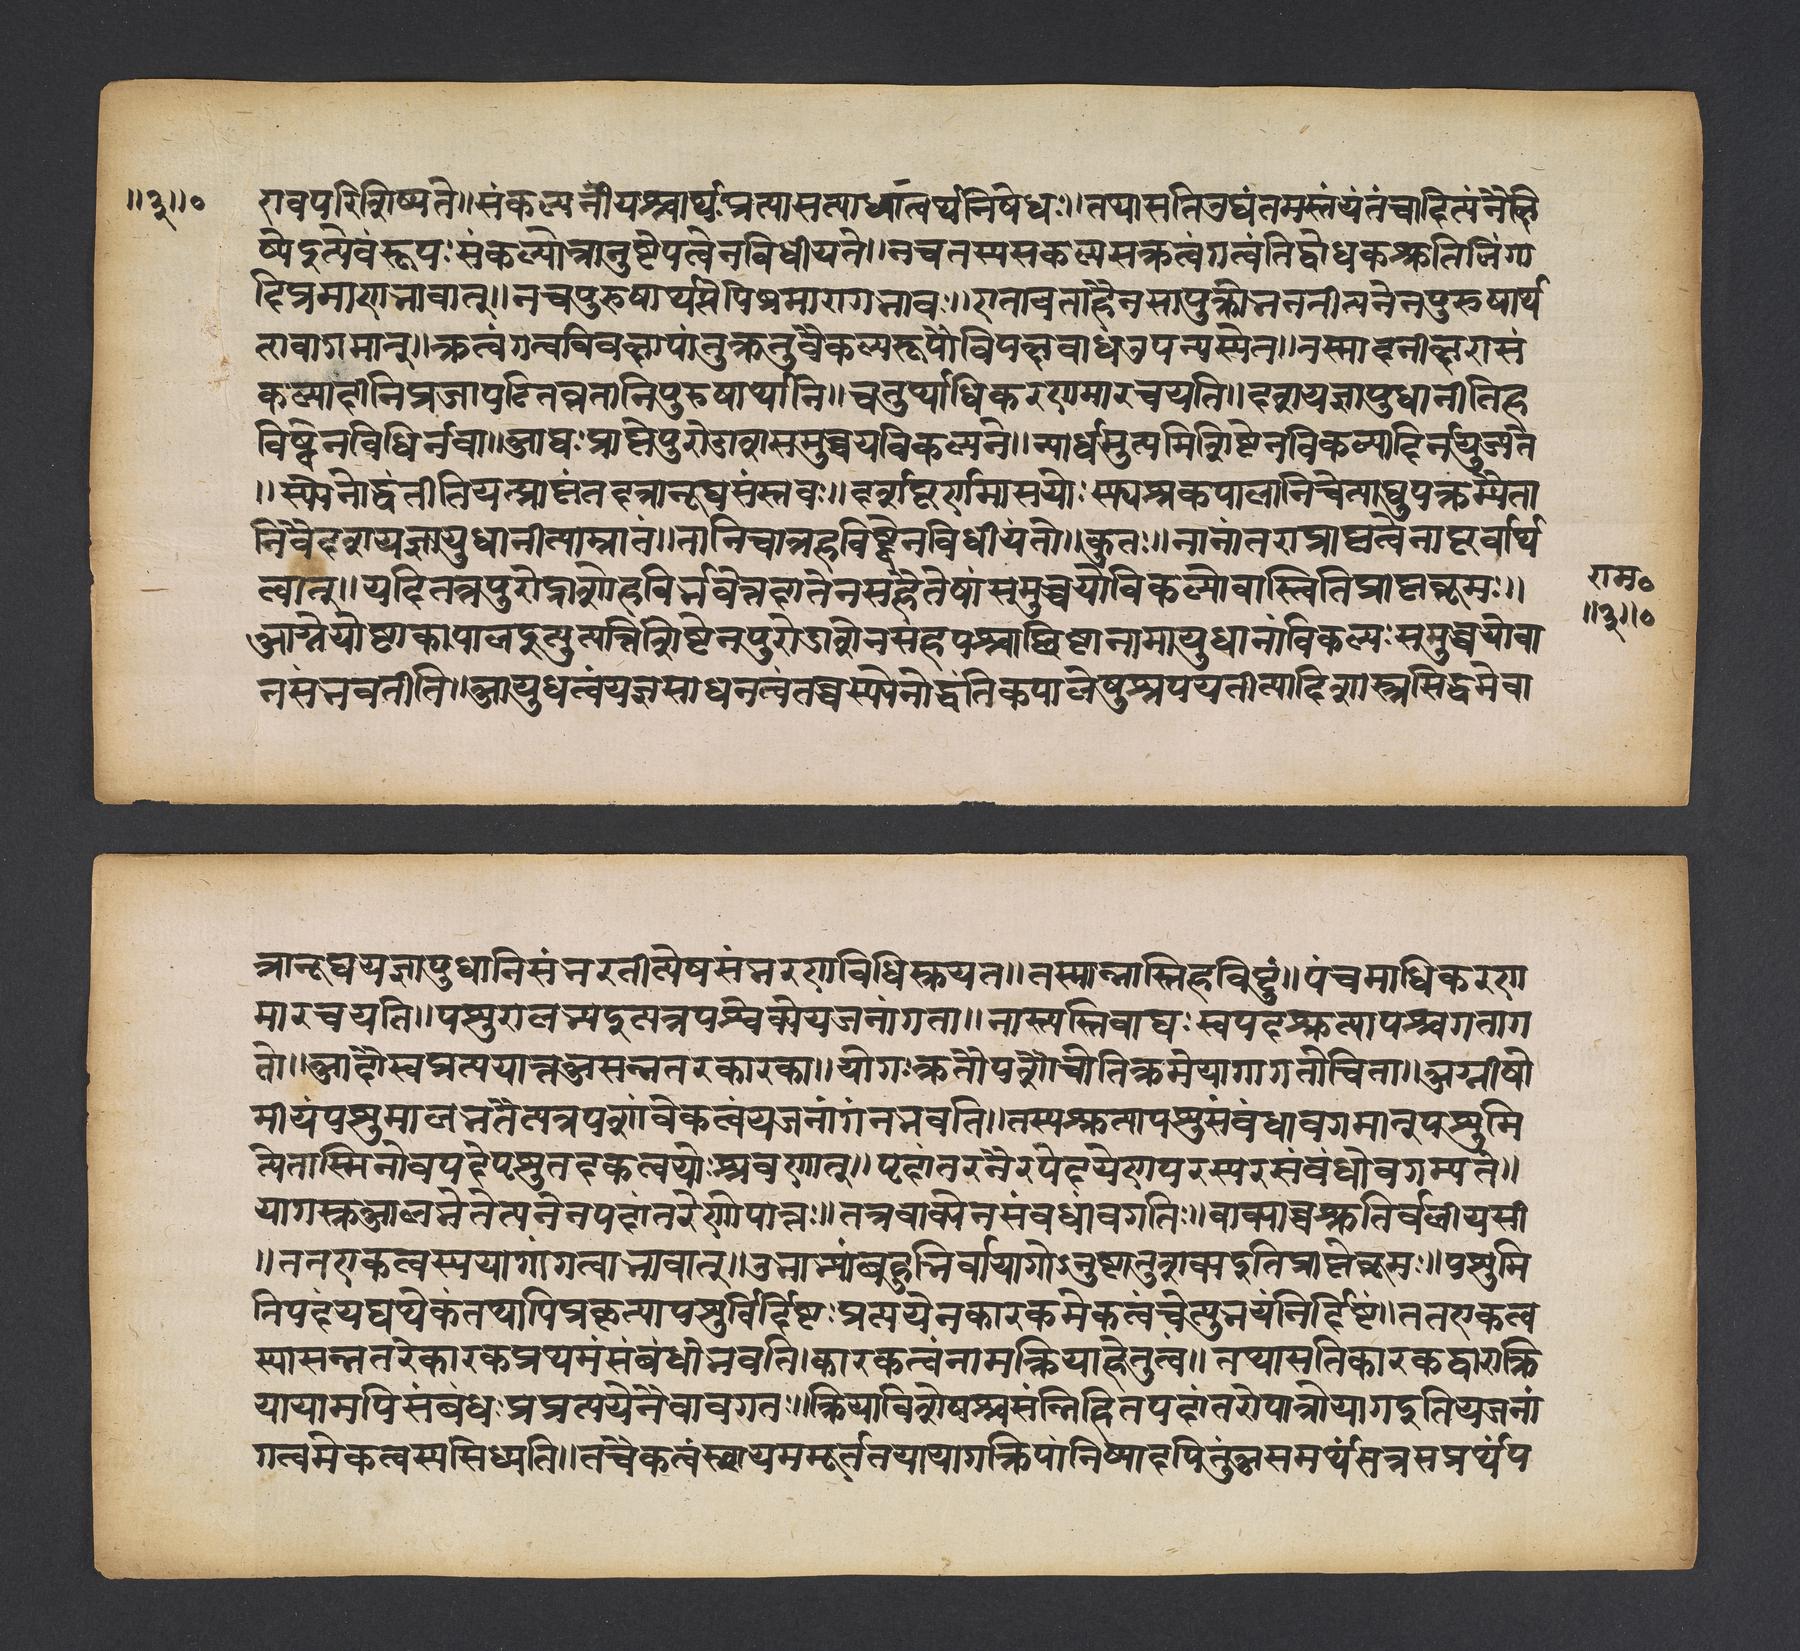 ॥३॥०
एवपरिशिष्यते॥संकल्पनीयश्चार्थःप्रत्यासत्याधात्वर्थनिषेधः॥तथासतिउद्यंतमस्तंयंतंचादित्यंनेक्षि
ष्येइत्येवंरूपःसंकल्पोत्रानुष्ठेयत्वेनविधीयते॥नचतस्यसंकल्पस्यक्रत्वंगत्वंतद्बोधकश्रुतिलिंगा
दिप्रमाणाभावात्॥नचपुरुषार्थत्वेपिप्रमाणाभावः॥एतावताहैनसायुक्तोभवतीत्यनेनपुरुषार्थ
त्वावगमात्॥क्रत्वंगत्वविवक्षायांतुक्रतुवैकल्यरूपोविपक्षबाधउपन्यस्येत॥तस्मादनीक्षणसं
कल्पादीनिप्रजापतिव्रतानिपुरुषार्थानि॥चतुर्थाधिकरणमारचयति॥दशयज्ञायुधानीतिह
विष्ट्वेनविधिर्नवा॥आद्यःप्राप्तेपुरोडाशसमुच्चयविकल्पने॥सार्धमुत्पत्तिशिष्टेनविकल्पादिर्नयुज्यते
॥स्फ्येनोद्धंतीतियत्प्राप्तंतदत्रानूद्यसंस्तवः॥दर्शपूर्णमासयोःस्फ्यश्चकपालानिचेत्याद्युपक्रम्यैता
निवैदशयज्ञायुधानीत्याम्नातं॥तानिचात्रहविष्ट्वेनविधीयंते॥कुतः॥मानांतराप्राप्तत्वेनापूर्वार्थ
त्वात्॥यदितत्रपुरोडाशोहविर्भवेत्तदातेनसहैतेषांसमुच्चयोविकल्पोवास्त्वितिप्राप्तेब्रूमः॥
आग्नेयोष्टाकपालइत्युत्पत्तिशिष्टेनपुरोडाशेनसहपश्चाच्छिष्टानामायुधानांविकल्पःसमुच्चयोवा
नसंभवतीति॥आयुधत्वंयज्ञसाधनत्वंतच्चस्फ्येनोद्धंतिकपालेषुश्रपयतीत्यादिशास्त्रसिद्धमेवा
राम०
॥३॥०
त्रानूद्ययज्ञायुधानिसंभरतीत्येषसंभरणविधिस्तूयते॥तस्मान्नास्तिहविष्ट्वं॥पंचमाधिकरण
मारचयति॥पशुरालभ्यइत्यत्रपश्वैक्येयजनांगता॥नास्त्यस्तिवाद्यःस्वपदश्रुत्यापश्वगताग
तेः॥आदौस्वप्रत्ययात्तआसन्नतरकारका॥योगःक्रतौपशौचेतिक्रमेयागागतोचिता॥अग्नीषो
मीयंपशुमालभेतेत्यत्रपशोवेकत्वंयजनांगंनभवति॥तस्यश्रुत्यापशुसंबंधावगमात्पशुमि
त्येतास्मिन्नेवपदेपशुतदेकत्वयोःश्रवणात्॥पदांतरनैरपेक्ष्येणपरस्परसंबंधोवगम्यते॥
यागस्तुआलभेतेत्यनेनपदांतरेणोपात्तः॥तत्रवाक्येनसंबधावगतिः॥वाक्याच्चश्रुतिर्बलीयसी
॥ततएकत्वस्ययागांगत्वाभावात्॥उभाभ्यांबहुभिर्वायागोऽनुष्ठातुंशक्यइतिप्राप्तेब्रूमः॥पशुमि
तिपदंयद्यप्येकंतथापिप्रकृत्यापशुर्निर्दिष्टःप्रत्ययेनकारकमेकत्वंचेत्युभयंनिर्दिष्टं॥ततएकत्व
स्यासन्नतरेकारकप्रथमंसंबंधोभवति।कारकत्वंनामक्रियाहेतुत्वं॥तथासतिकारकद्वाराक्रि
यायामपिसंबंधःप्रप्रत्ययेनैवावगतः॥क्रियाविशेषश्चसंनिहितपदांतरोपात्तोयागइतियजनां
गत्वमेकत्वस्यसिध्यति॥तच्चैकत्वंस्वयममूर्ततयायागक्रियांनिष्पादयितुंअसमर्थंसत्रसप्रर्थंप